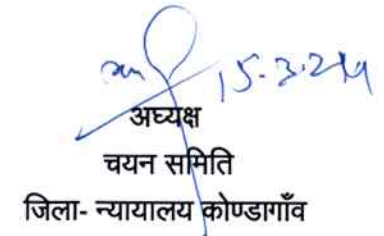 अध्यक्ष
चयन समिति
जिला- न्यायालय कोण्डागाँव